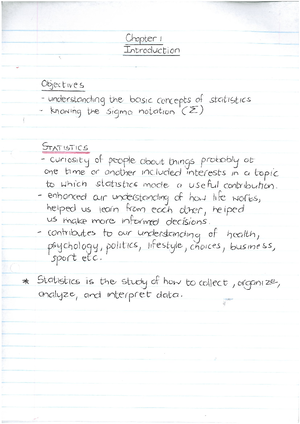 Chapter 1
Introduction
Objectives
- understanding the basic concepts of statistics
- knowing the sigma notation (Σ)
STATISTICS
- curiosity of people about things probably at
one time or another included interests in a topic
to which statistics made a useful contribution.
- enhanced our understanding of how life works,
helped us learn from each other, helped
us make more informed decisions.
- contributes to our understanding of health,
psychology, politics, lifestyle, choices, business,
sport etc.
* Statistics is the study of how to collect, organize,
analyze, and interpret data.